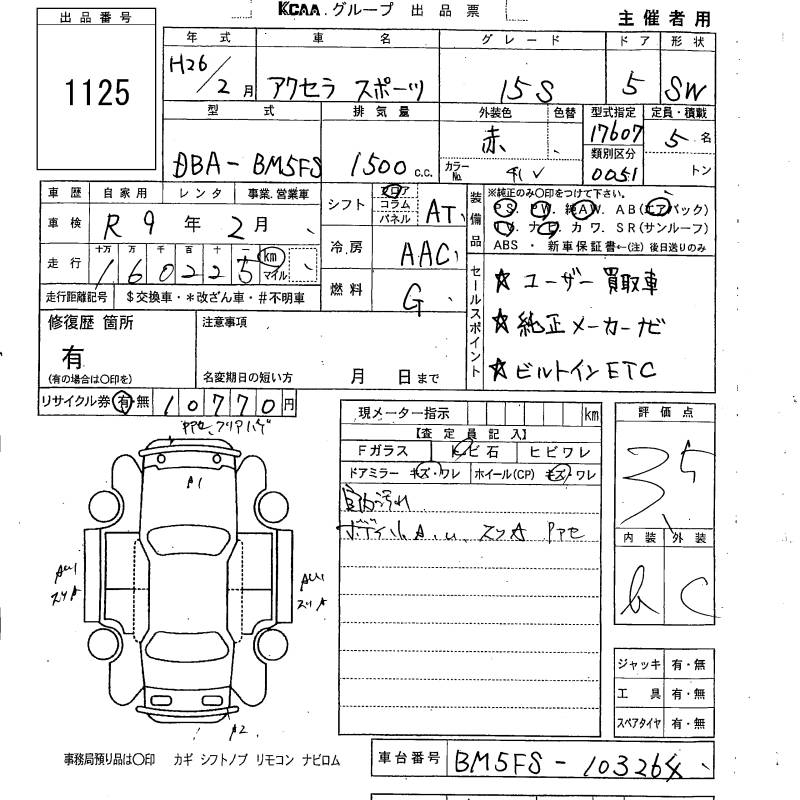 KCAA.グループ 出品票
主催者用
出品番号
1125
年式 車名 グレード ドア 形状
H26/2月 アクセラ スポーツ 15S 5 SW
型式 排気量 外装色 色替 型式指定 定員・積載
DBA-BM5FS 1500 C.C. 赤 17607 5名
カラーNo. 41V 類別区分 0051 トン
車歴 自家用 レンタ 事業.営業車
車検 R9年2月
走行 十万 万 千 百 十 一
160225 km マイル
走行距離記号 $交換車・*改ざん車・#不明車
シフト フロア コラム パネル AT
冷房 AAC
燃料 G
装備品 ※純正のみ○印をつけて下さい。
PS. PW. 純AW. AB(エアバック)
TV. ナビ. カワ. SR(サンルーフ)
ABS ・ 新車保証書←(注)後日送りのみ
セールスポイント
☆ユーザー買取車
☆純正メーカーナビ
☆ビルトインETC
修復歴 箇所
有
(有の場合は○印を)
注意事項
名変期日の短い方 月 日まで
リサイクル券 有・無 10770円
現メーター指示 km
【査定員記入】
Fガラス トビ石 ヒビワレ
ドアミラー キズ・ワレ ホイール(CP) キズ・ワレ
評価点
3.5
内装 外装
b C
A1
A2
ジャッキ 有・無
工具 有・無
スペアタイヤ 有・無
事務局預り品は○印 カギ シフトノブ リモコン ナビロム
車台番号 BM5FS-103264